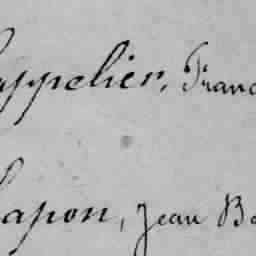 appelier, Franc
apon, Jean Ba